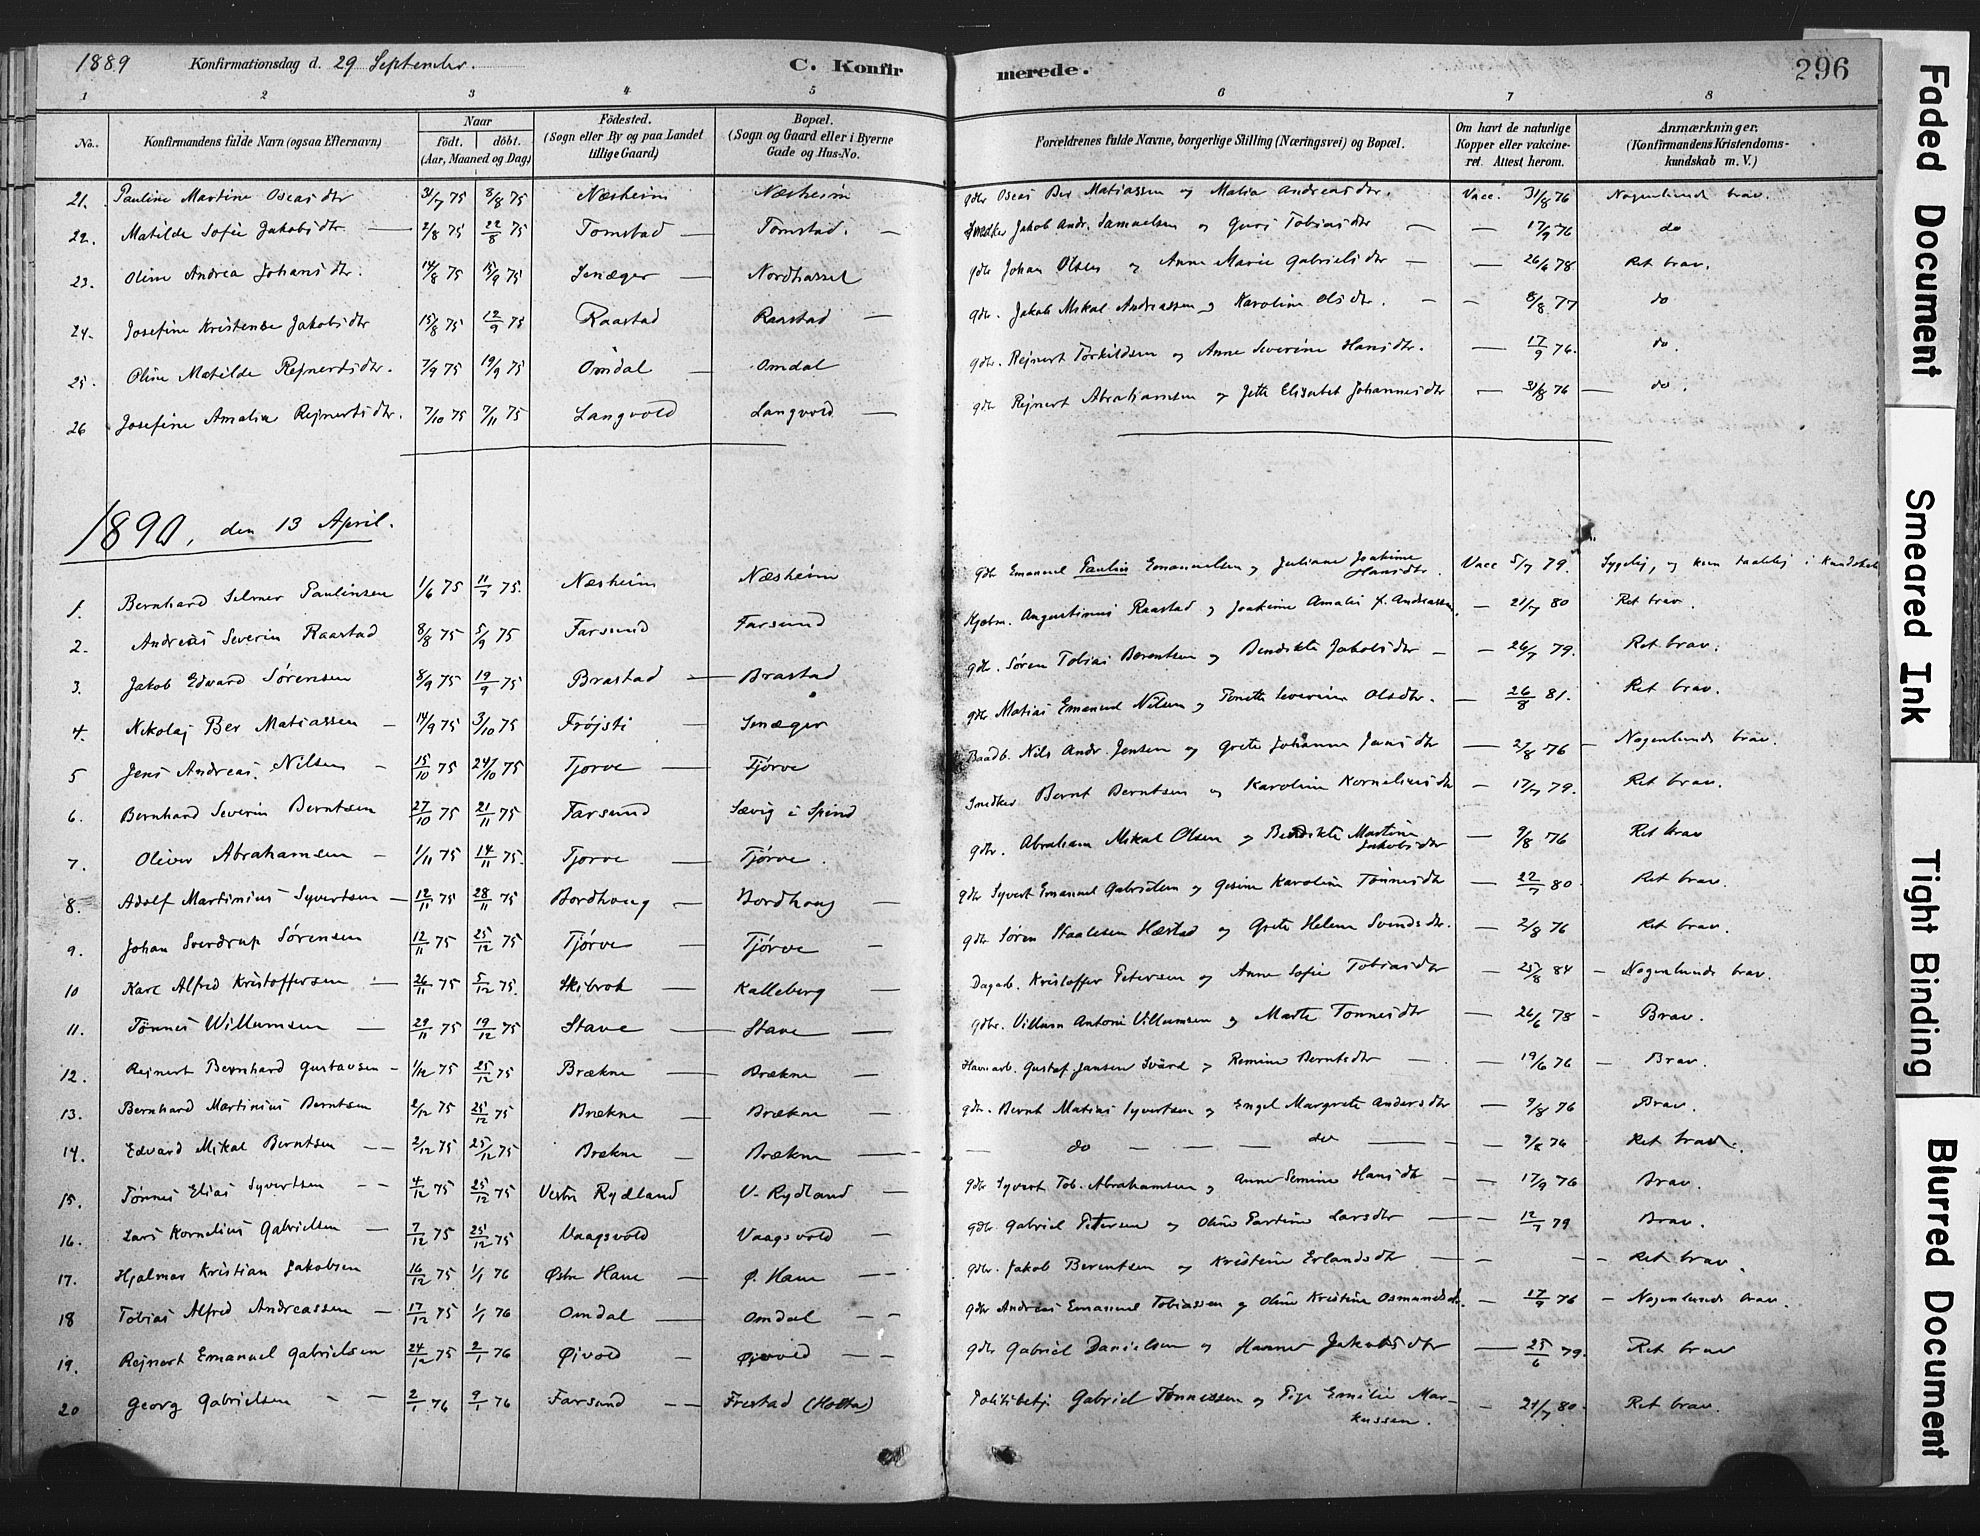 1889 Konfirmationsdag d. 29 September. C. Konfirmerede. 296
1 2 3 4 5 6 7 8
No. Konfirmandens fulde Navn (ogsaa Efternavn) Naar født. døbt. (Aar, Maaned og Dag) Fødested. (Sogn eller By og paa Landet tillige Gaard) Bopæl. (Sogn og Gaard eller i Byerne Gade og Hus-No. Forældrenes fulde Navne, borgerlige Stilling (Næringsvei) og Bopæl. Om havt de naturlige Kopper eller vakcineret. Attest herom. Anmærkninger. (Konfirmandens Kristendomskundskab m. V.)
21. Pauline Martine Oseasdtr 31/7 75 8/8 75 Næsheim Næsheim gdbr Oseas Ber Matiassen og Malia Andreasdtr. Vacc. 31/8 76 Nogenlunde brav.
22. Matilde Sofie Jakobsdtr. — 2/8 75 22/8 75 Tomstad — Tomstad. — Snedker Jakob Andr. Samuelsen og Guri Tobiasdtr — — 17/9 76 do
23. Oline Andrea Johansdtr. 14/8 75 15/9 75 Snæger — Nordhassel gdbr Johan Olsen og Anne Marie Gabrielsdtr — — 26/6 78 Ret brav.
24. Josefine Kristense Jakobsdtr 15/8 75 12/9 75 Raastad Raastad — gdbr. Jakob Mikal Andreassen og Karoline Olsdtr. — — 8/8 77 do
25. Oline Matilde Rejnertsdtr. 7/9 75 19/9 75 Omdal — Omdal gdbr. Rejnert Torkildsen og Anne Severine Hansdtr. — 17/9 76. do.
26 Josefine Amalia Rejnertsdtr. 7/10 75 7/11 75 Langvold Langvold — gdbr Rejnert Abrahamsen og Jette Elisabet Johannesdtr — 31/8 76 — do.
1890, den 13 April.
1. Bernhard Selmer Paulinsen 1/6 75 11/7 75. Næsheim Næsheim gdbr Emanuel Paulin Emanuelsen og Juliane Joakime Hansdtr. Vacc 5/7 79. Sygelig, og kun taalelig i Kundskab
2. Andreas Severin Raastad 8/8 75 5/9 75 Farsund Farsund Kjøbm. Augustinus Raastad og Joakime Amalie f. Andreassen. — 21/7 80 Ret brav.
3. Jakob Edvard Sørensen 8/9 75 19/9 75 Brastad — Brastad gdbr. Søren Tobias Berentsen og Bendikte Jakobsdtr — — 26/7 79. Ret brav.
4. Nikolaj Ber Matiassen — 14/9 75 3/10 75 Frøjsti — Snæger gdbr Matias Emanuel Nilsen og Tonette Severine Olsdtr. — 26/8 81. Ret brav.
5 Jens Andreas Nilsen — 15/10 75 24/10 75 Tjørve — Tjørve Baadb. Nils Andr. Jensen og Grete Johanne Jensdtr — 2/8 76 — Nogenlunde brav.
6. Bernhard Severin Berntsen 27/10 75 21/11 75 Farsund Sævig i Spind Snedker Bernt Berntsen og Karoline Korneliusdtr — 17/7 79. Ret brav.
7. Oliver Abrahamsen — 1/11 75 14/11 75. Tjørve — Tjørve. gdbr. Abraham Mikal Olsen og Bendikte Martine Jakobsdtr — 9/8 76 Ret brav
8. Adolf Martinius Syvertsen — 12/11 75 28/11 75 Bordhoug — Bordhoug — gdbr Syvert Emanuel Gabrielsen og Gesine Karoline Tønnesdtr — 22/7 80. Ret brav.
9. Johan Sverdrup Sørensen 12/11 75 25/12 75 Tjørve — Tjørve — gdbr Søren Staalesen Hæstad og Grete Helene Svendsdtr. — 2/8 76 Ret brav.
10 Karl Alfred Kristoffersen — 26/11 75 5/12 75. Skibrok — Kalleberg — Dagarb. Kristoffer Petersen og Anne Sofie Tobiasdtr — 25/8 84 — Nogenlunde brav.
11. Tønnes Willumsen — 29/11 75 19/12 75 Stave — Stave — gdbr. Villum Antoni Villumsen og Marte Tønnesdtr — 26/6 78 — Brav.
12. Rejnert Bernhard Gustavsen — 1/12 75 25/12 75 Brækne — Brækne — Havnarb. Gustaf Jansen Svärd og Remine Berntsdtr — — 19/6 76 — Brav.
13. Bernhard Martinius Berntsen 2/12 75 25/12 75 Brækne — Brækne — gdbr. Bernt Matias Syvertsen og Engel Margrete Andersdtr — 9/8 76 Brav.
14. Edvard Mikal Berntsen — — 2/12 75 25/12 75 Brækne — Brækne — — do — — — do — — 9/8 76 Ret brav.
15. Tønnes Elias Syvertsen — — 4/12 75 25/12 75 Vestre Rydland V. Rydland — gdbr Syvert Tob. Abrahamsen og Anne Semine Hansdtr — — 17/9 76 Brav.
16. Lars Kornelius Gabrielsen — 7/12 75 25/12 75 Vaagsvold Vaagsvold — gdbr. Gabriel Petersen og Oline Partine Larsdtr — — 12/7 79 Brav.
17. Hjalmar Kristian Jakobsen 16/12 75 1/1 76 Østre Haue — Ø. Haue — gdbr. Jakob Berentsen og Kristine Erlandsdtr — — — Ret brav.
18 Tobias Alfred Andreassen — 17/12 75 1/1 76 Omdal — Omdal — — gdbr Andreas Emanuel Tobiassen og Oline Kristine Osmundsdtr. — 17/9 76 — Nogenlunde brav.
19. Rejnert Emanuel Gabrielsen 24/12 75 2/1 76 Øivold — Øivold — — gdbr Gabriel Danielsen og Hanne Jakobsdtr — 25/6 79. Ret brav
20 Georg Gabrielsen — — 2/1 76 9/1 76 Farsund — — Frestad (Hotta) Politibetj. Gabriel Tønnessen og Pige Emilie Markussen. — 21/7 80. Ret brav.
Faded Document
Smeared Ink
Tight Binding
Blurred Document